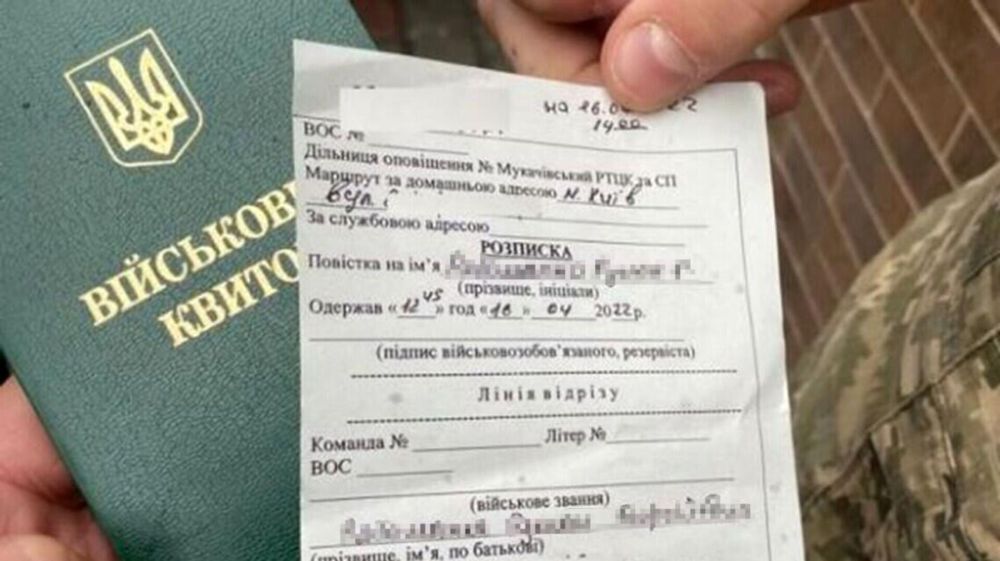 ВІЙСЬКОВ
КВИТО
на 16.0
14 00
ВОС №
Дільниця оповіщення № Мукачівський РТЦК та СП
Маршрут за домашньою адресою м. Київ
вул.
За службовою адресою
РОЗПИСКА
Повістка на ім'я
(прізвище, ініціали)
Одержав «12 45» год «16» 04 2022 р.
(підпис військовозобов'язаного, резервіста)
Лінія відрізу
Команда № Літер №
ВОС
(військове звання)
(прізвище, ім'я, по батькові)